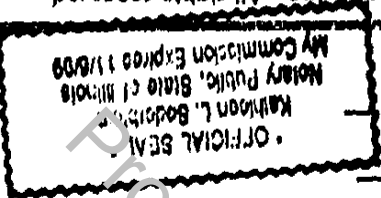 • OFFICIAL SEAL •
Kathleen L.
Notary Public, State of Illinois
My Commission Expires 11/8/09